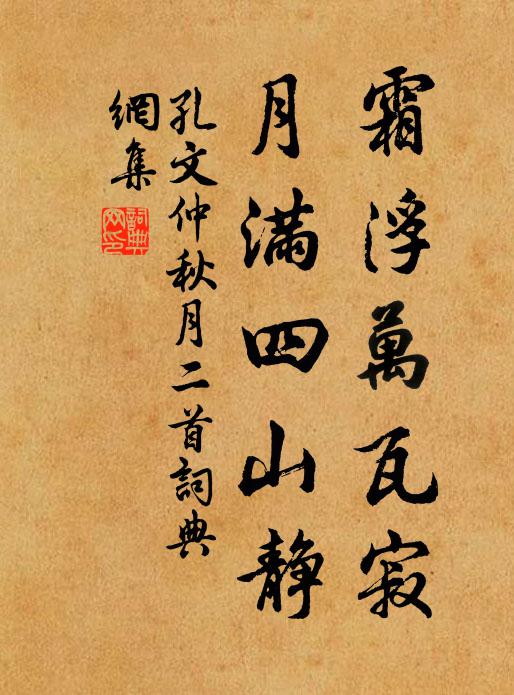 霜浮萬瓦寂
月滿四山靜
孔文仲秋月二首詞典
網集
詞典網印